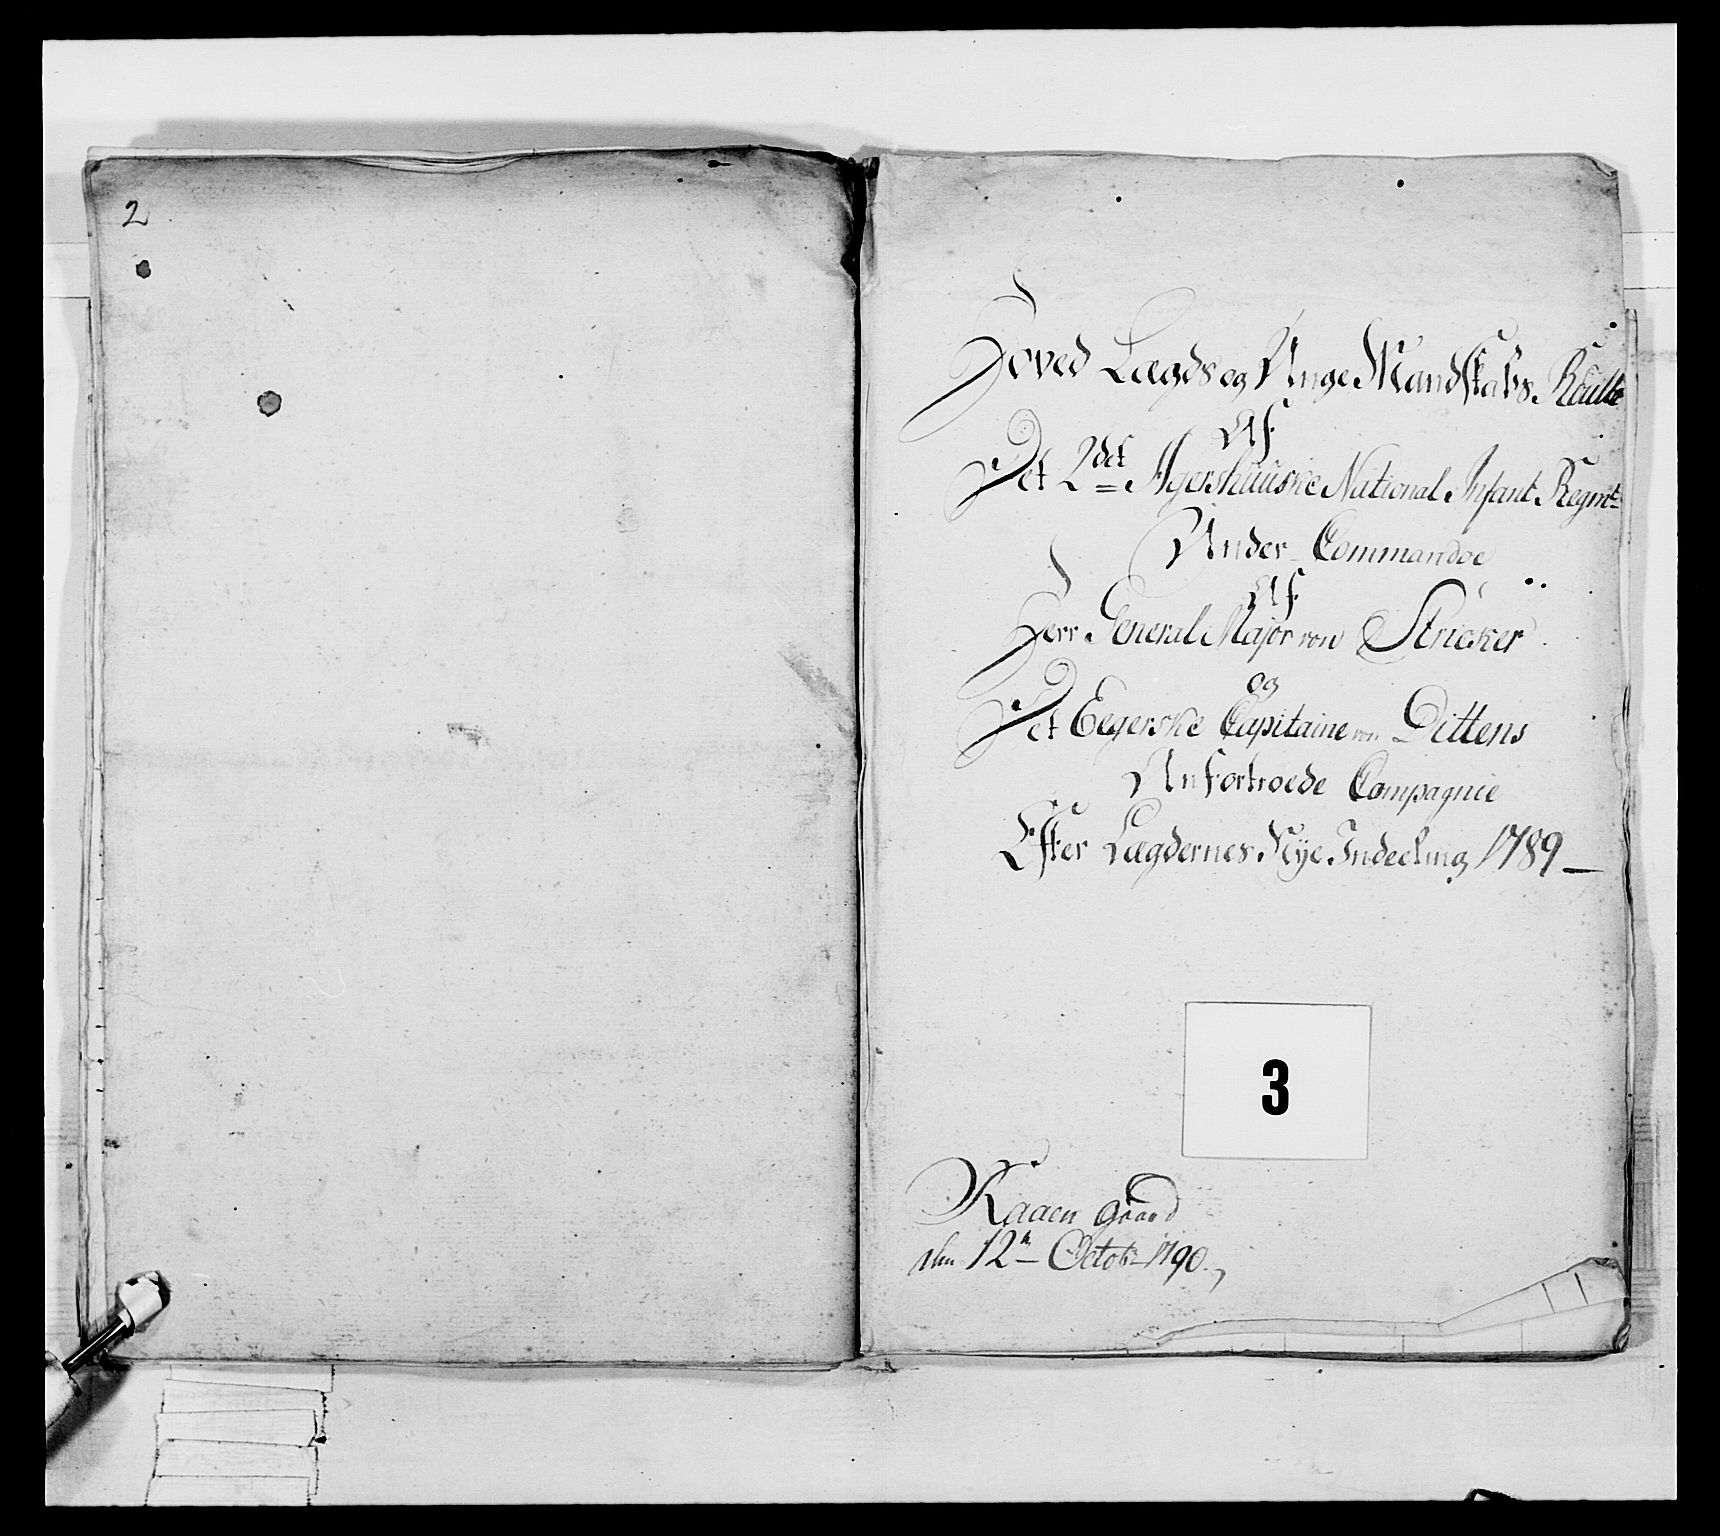 2
Hoved Lægds og Unge Mandskabs Roulle
Af
Det 2det Agershuuske National Infant Regmt
Under Commandoe
Af
Herr General Major von Stricker
og
Det Eegerske Capitaine von Dittens
Anfortroede Compagnie
Efter Lægdernes Nye Indeeling 1789
3
Kaaen gaard
den 12te Octobr 1790